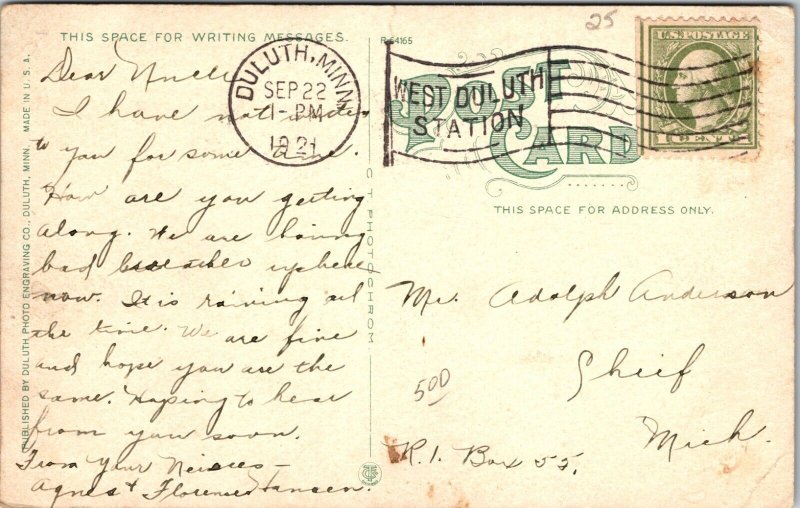 THIS SPACE FOR WRITING MESSAGES.
R-64165
25
Dear Uncle
I have not
to you for some time.
How are you getting
along. We are having
bad weather up here
now. It is raining all
the time. We are fine
and hope you are the
same. Hoping to hear
from you soon.
From Your Neices -
Agnes + Florence Hansen.
DULUTH, MINN.
SEP 22
1 - PM
1921
WEST DULUTH
STATION
POST
CARD
U.S. POSTAGE
1 CENT 1
THIS SPACE FOR ADDRESS ONLY.
Mr. Adolph Anderson
Mich.
R.1. Box 55.
500
PUBLISHED BY DULUTH PHOTO ENGRAVING CO., DULUTH, MINN. MADE IN U.S.A.
C T PHOTOCHROM